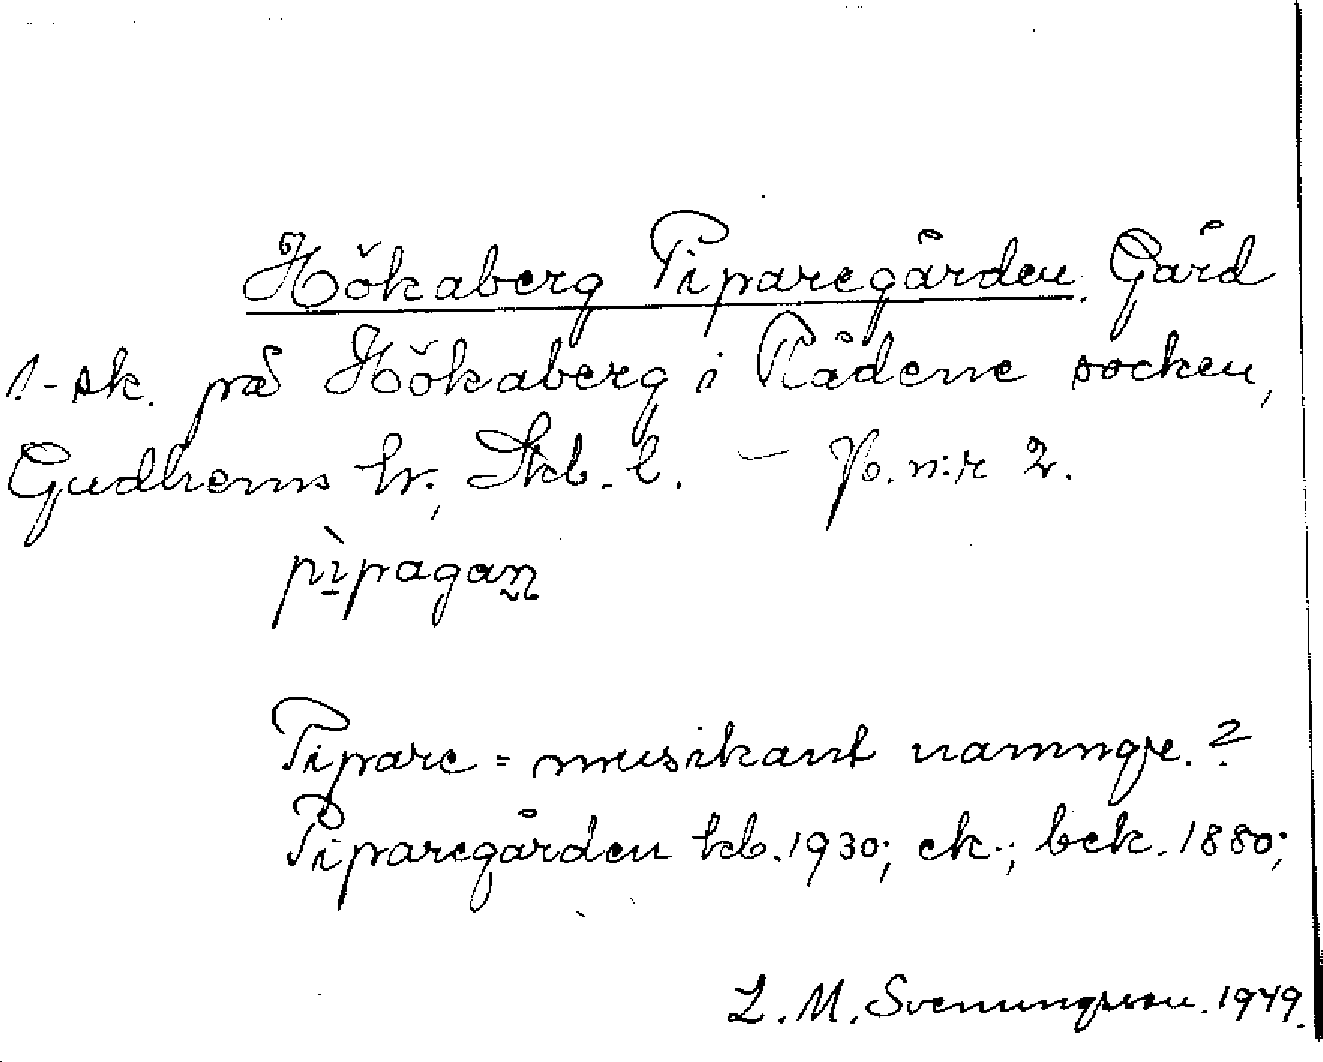 Hökaberg Piparegården. Gård
1-sk. på Hökaberg i Rådene socken,
Gudhems hr., Skb. l. — Jo. n:r 2.
pìpagaṉ
Pipare = musikant namnge.?
Piparegården kb. 1930; ek.; bek. 1880;
L. M. Svenungsson. 1949.